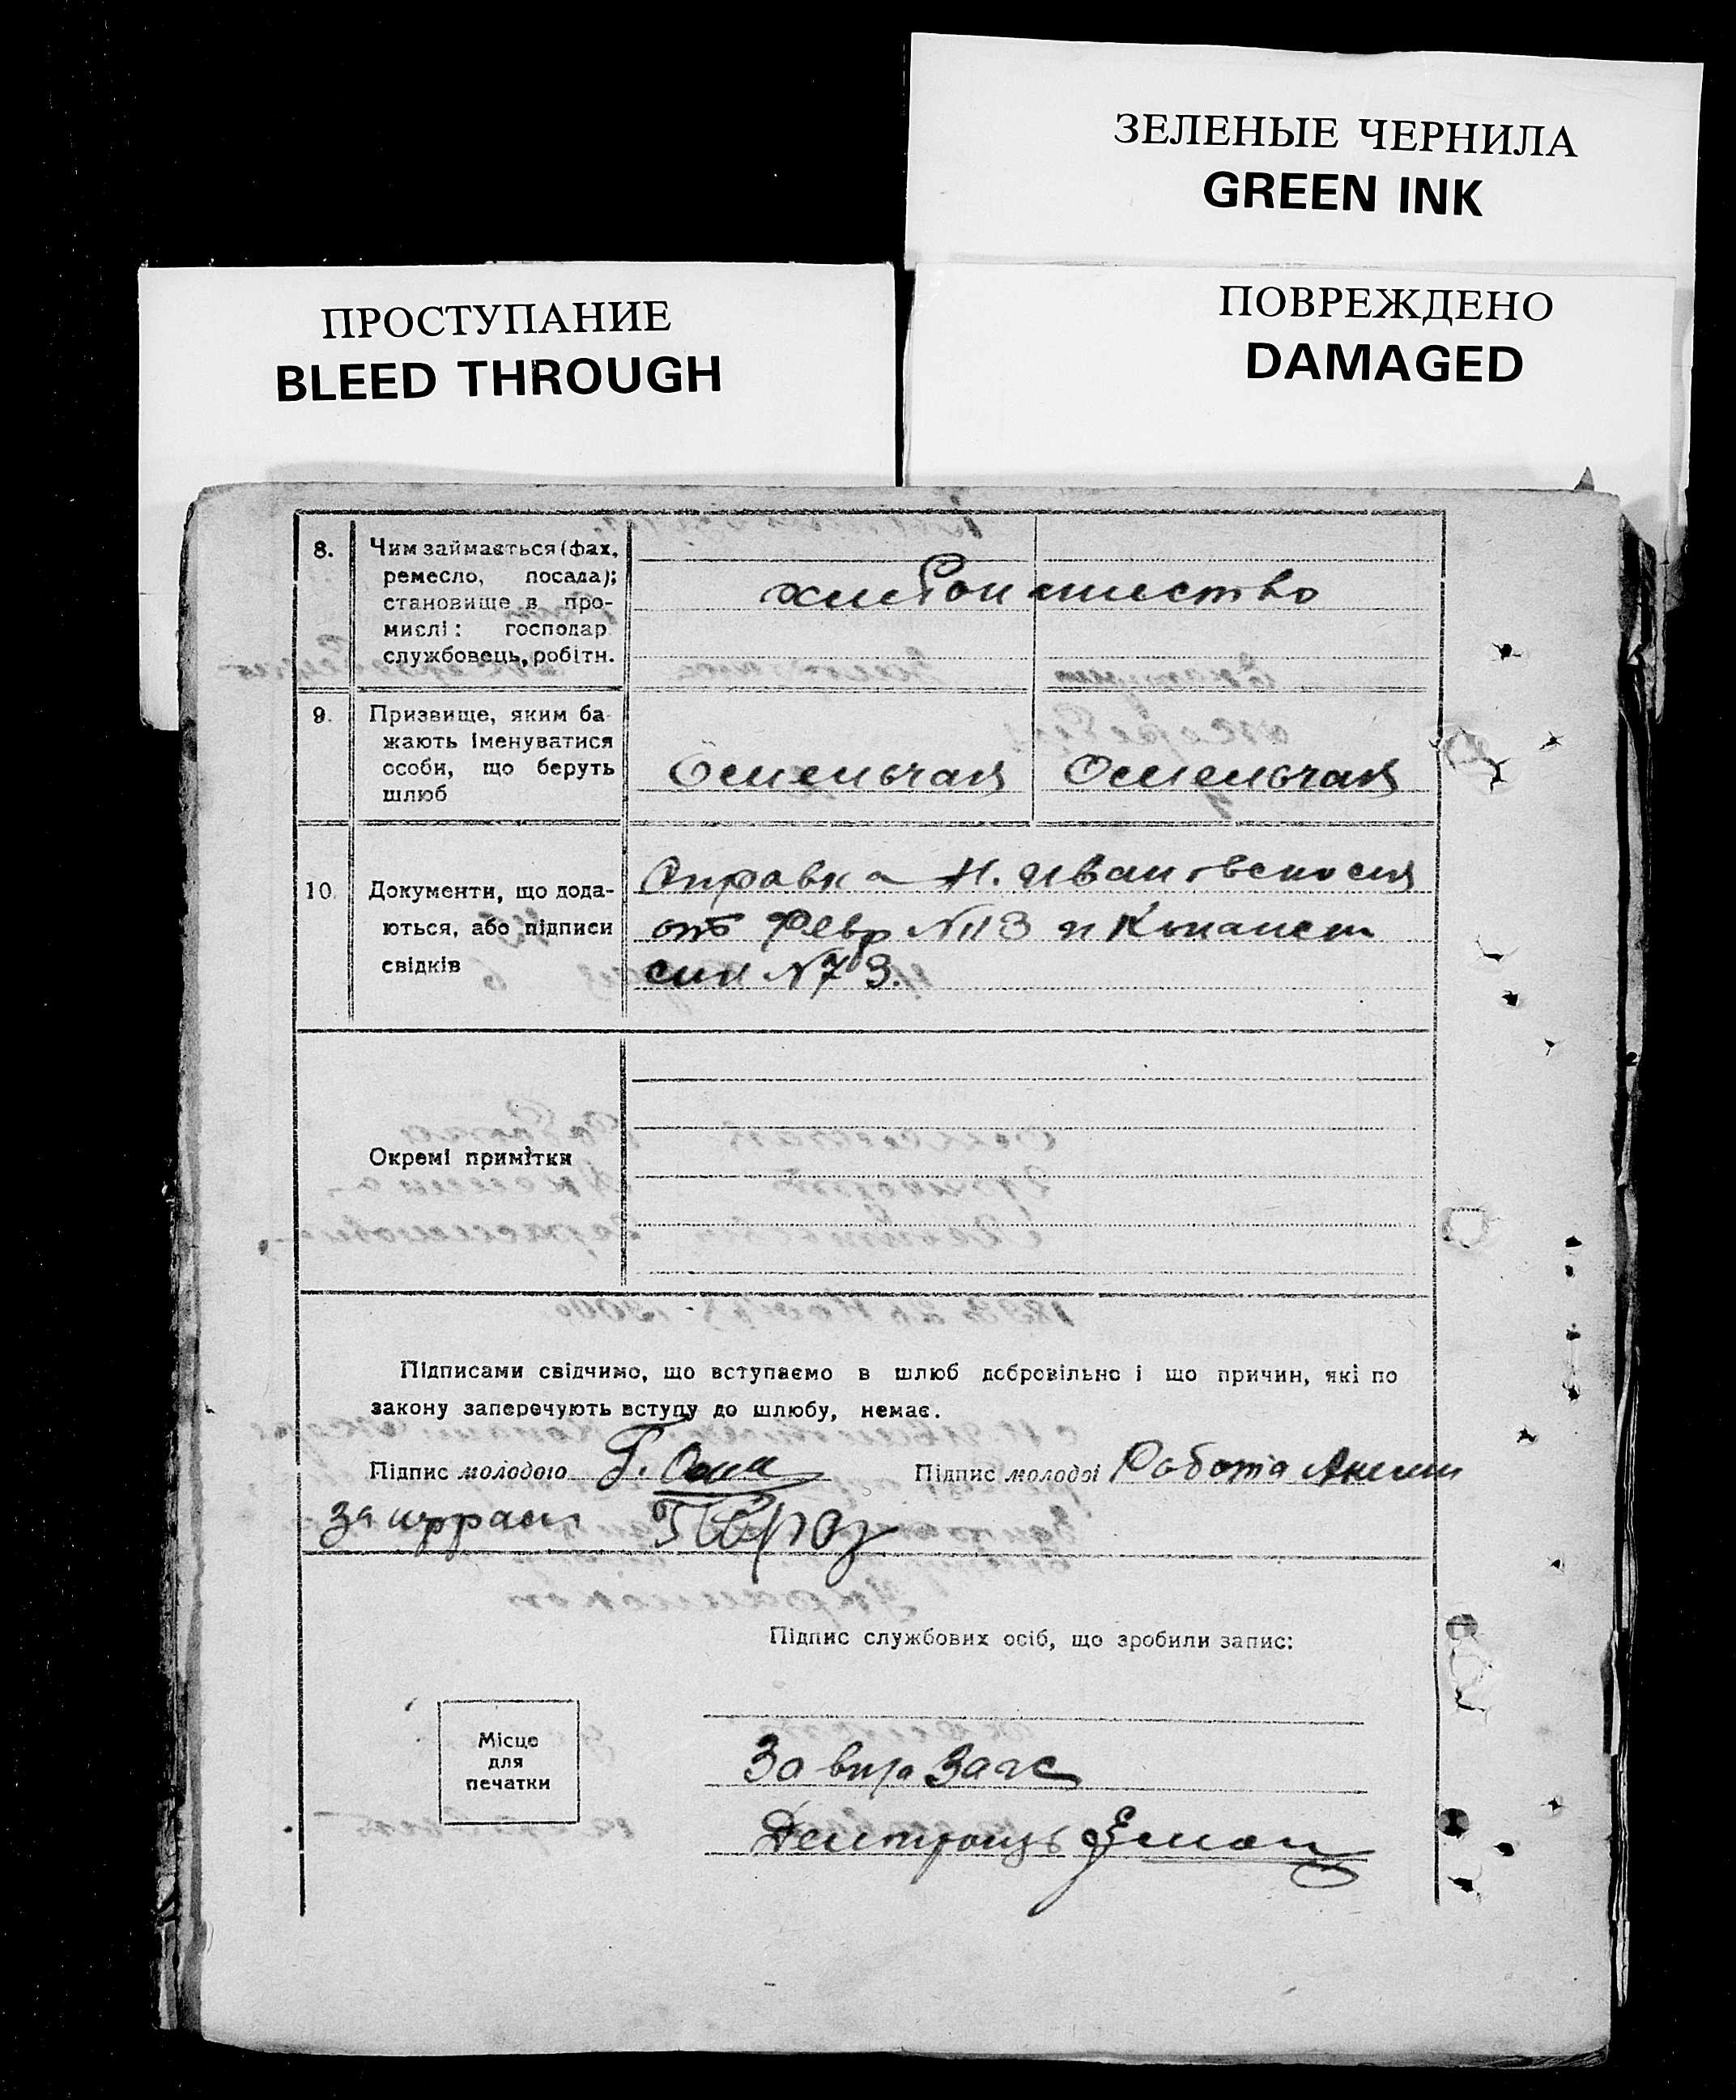 ЗЕЛЕНЫЕ ЧЕРНИЛА
GREEN INK
ПРОСТУПАНИЕ
BLEED THROUGH
ПОВРЕЖДЕНО
DAMAGED
8. Чим займається (фах,
ремесло, посада);
становище в про-
мислі: господар
службовець, робітн.
9. Призвище, яким ба-
жають іменуватися
особи, що беруть
шлюб
Омельчак Омельчак
10. Документи, що дода-
ються, або підписи
свідків
Справка Н. Ивановской с/с
от Февр N 113 и
N 73.
Окремі примітки
Підписами свідчимо, що вступаємо в шлюб добровільно і що причин, які по
закону заперечують вступу до шлюбу, немає.
Підпис молодого Г. Підпис молодої Работа
Підпис службових осіб, що зробили запис:
Місце
для
печатки
Загс